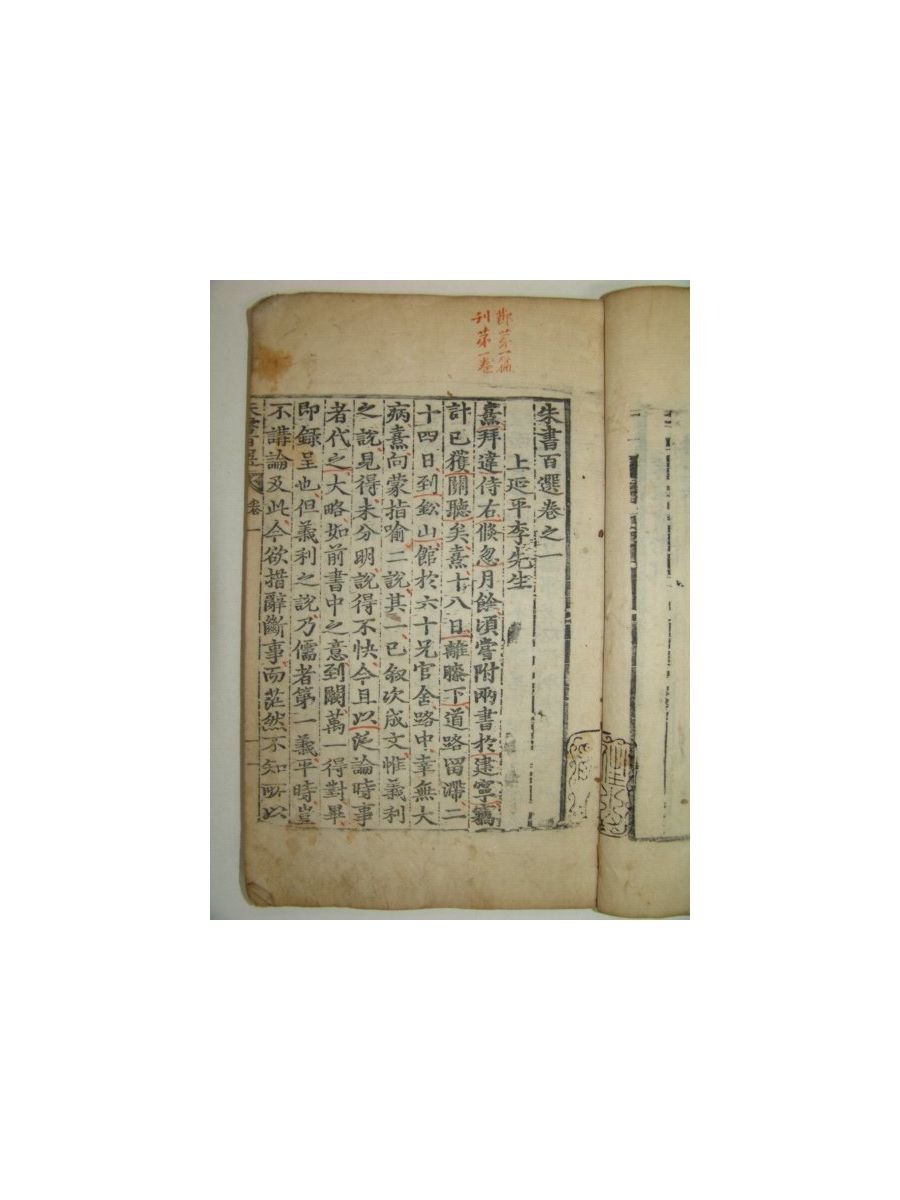 刊第一卷
朱書百選卷之一
上延平李先生
熹拜違侍右倏忽月餘頃嘗附兩書於建寧竊
計已獲關聽矣熹十八日離膝下道路留滯二
十四日到鉛山館於六十兄官舍路中幸無大
病熹向蒙指喩二說其一已叙次成文惟義利
之說見得未分明說得不快今且以泛論時事
者代之大略如前書中之意到闕萬一得對畢
即錄呈也但義利之說乃儒者第一義平時豈
不講論及此今欲措辭斷事而茫然不知所以
朱書百選 卷一